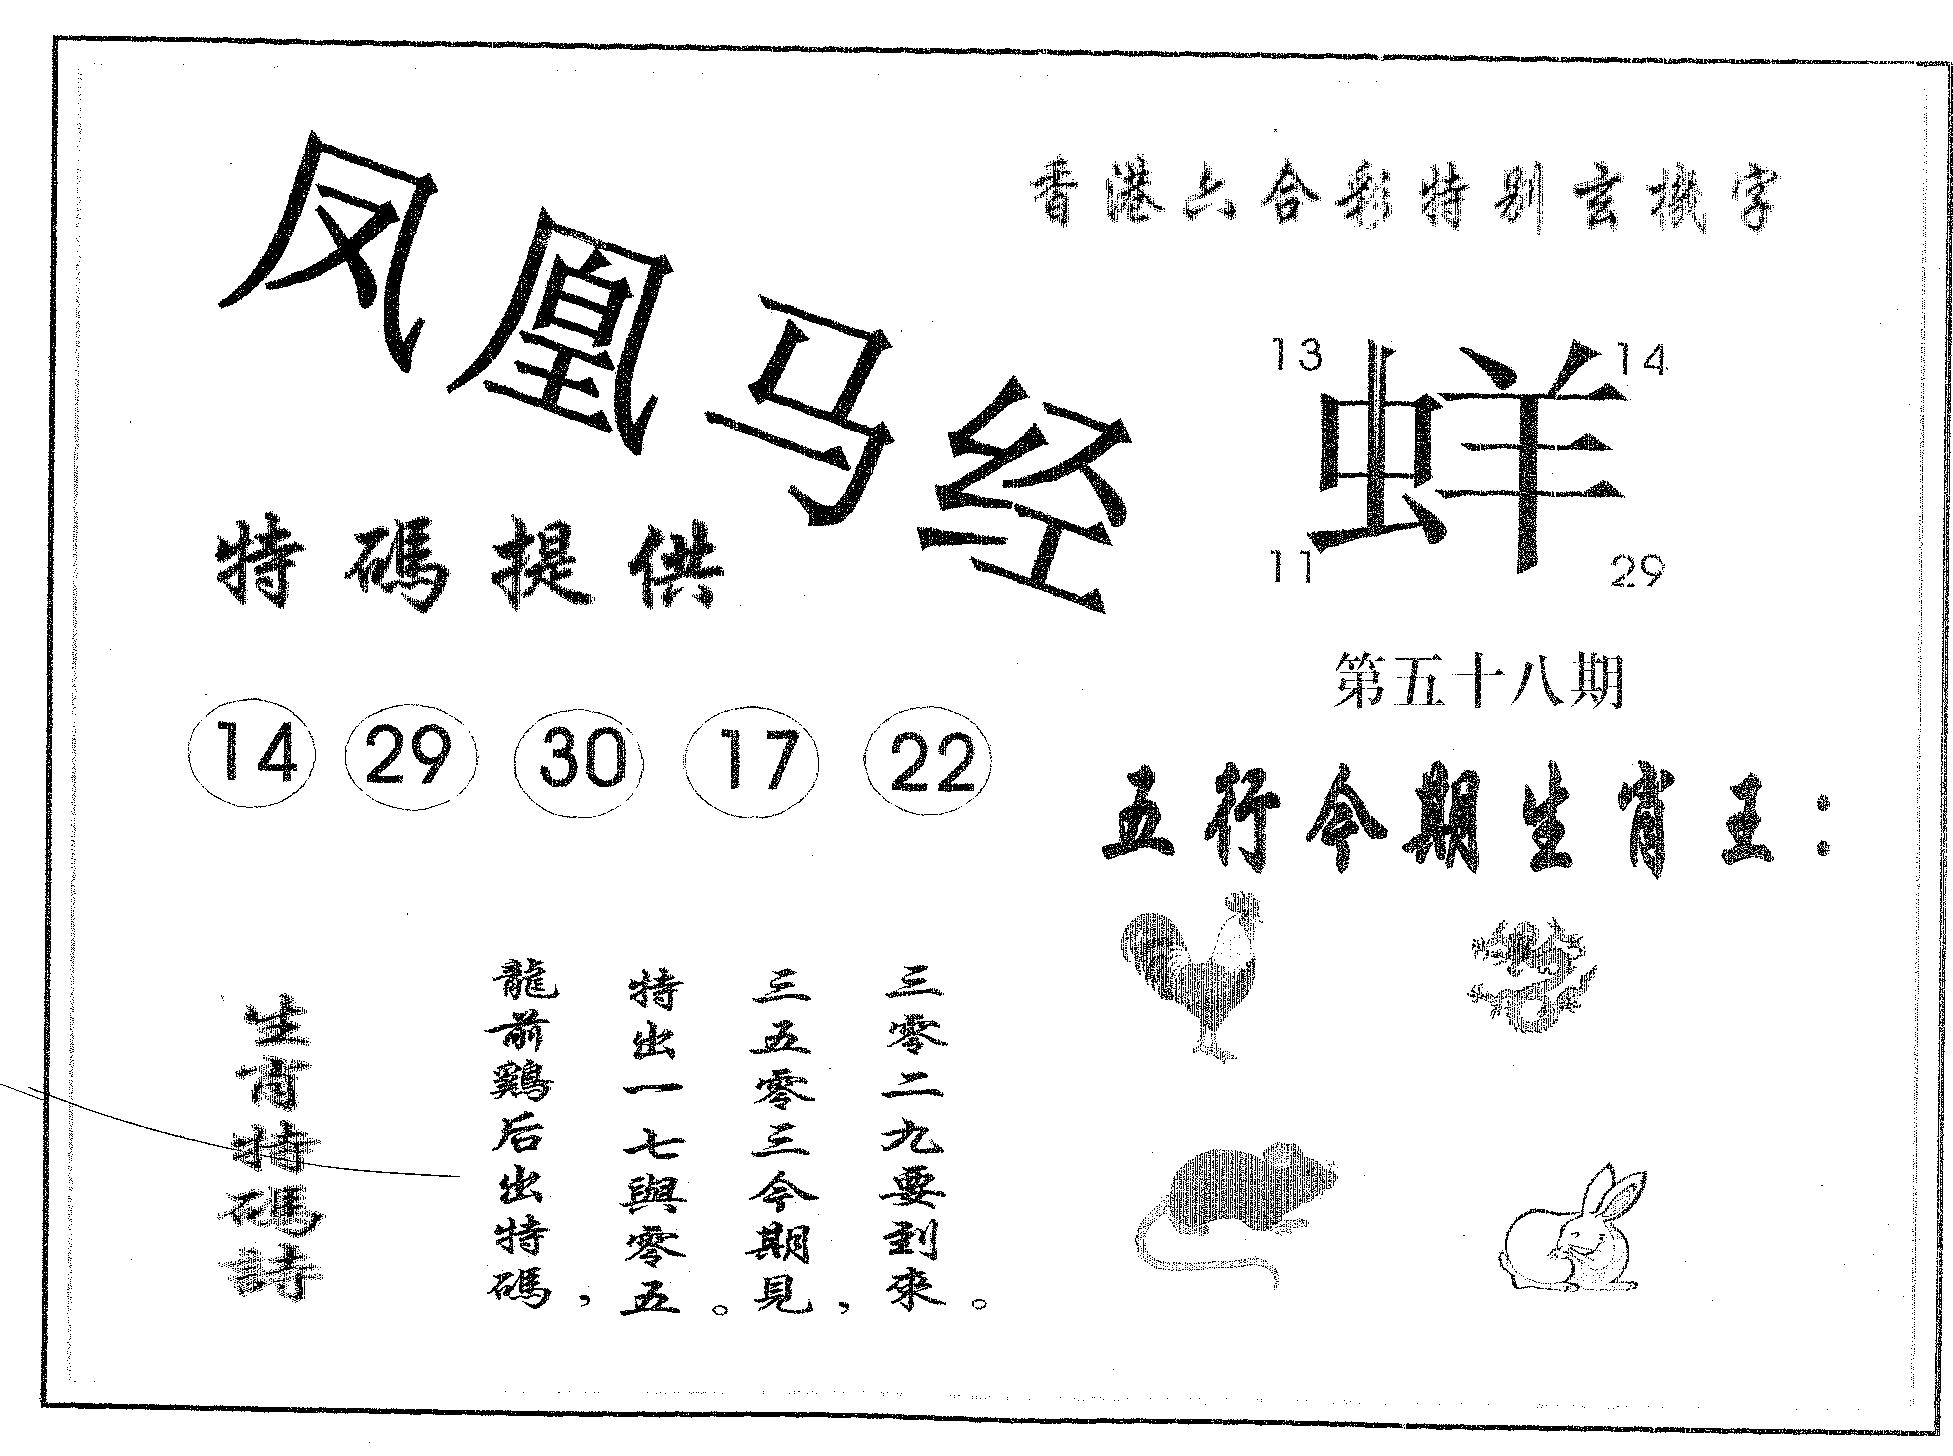 凤凰马经
香港六合彩特别玄機字
13 14
蛘
11 29
特碼提供
第五十八期
14 29 30 17 22
五行今期生肖王：
生肖特碼詩
龍前鷄后出特碼，
特出一七與零五。
三五零三今期見，
三零二九要到來。